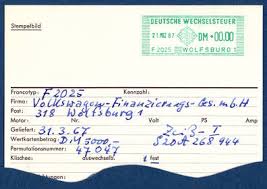 Stempelbild
DEUTSCHE WECHSELSTEUER
21.MRZ 67 DM *00.00
F 2025 WOLFSBURG 1
Francotyp: F 2025
Firma: Volkswagen-Finanzierungs-Ges.m.b.H
Post: 318 Wolfsburg 1
Motor: Volt PS Amp
Geliefert: 31.3.67 Zeiß-I
Wertkartenbetrag: DM 3000,- S20A 268 944
Permanentnummer: 47047
Klischee: auswechselb. 1 fest